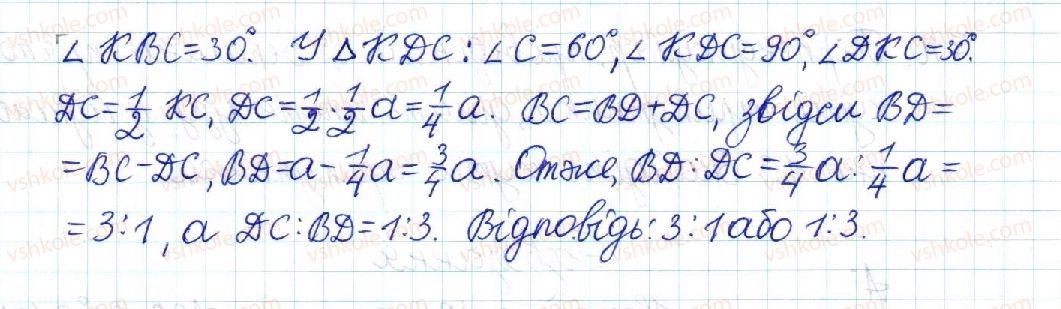 ∠KBC=30°. У △KDC: ∠C=60°, ∠KDC=90°, ∠DKC=30°.
DC=1/2 KC, DC=1/2·1/2 a=1/4 a. BC=BD+DC, звідси BD=
=BC-DC, BD=a-1/4 a=3/4 a. Отже, BD:DC=3/4 a:1/4 a=
=3:1, а DC:BD=1:3. Відповідь: 3:1 або 1:3.